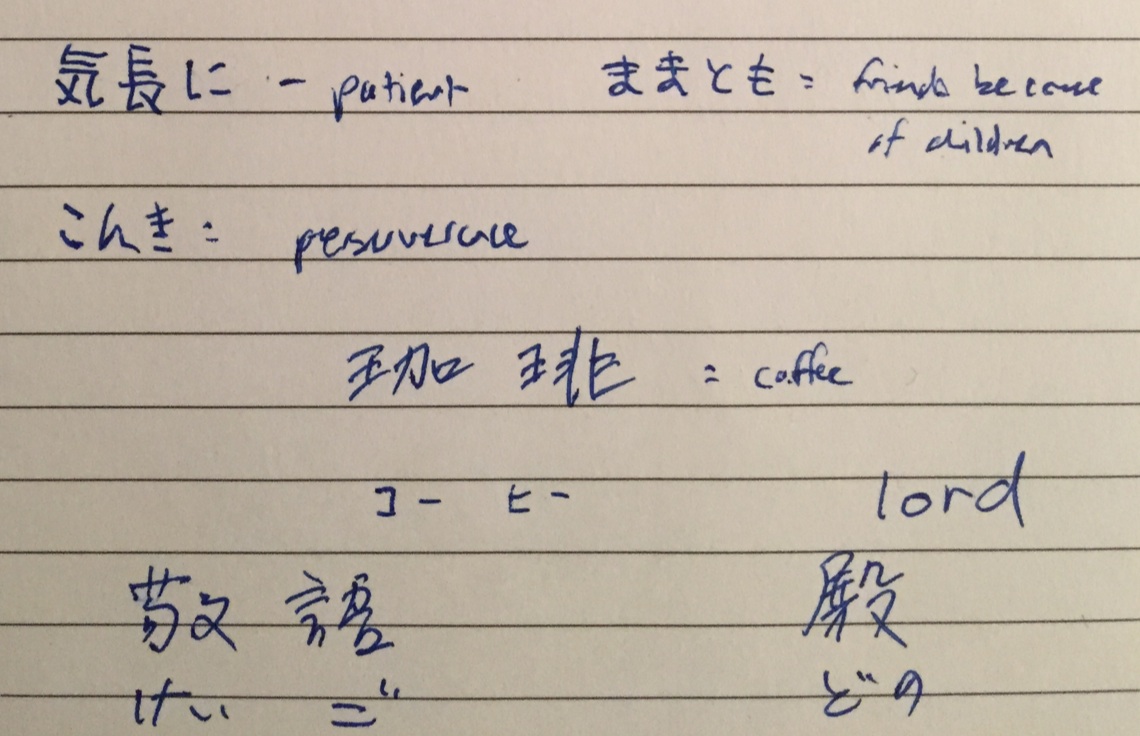 気長に - patient ままとも = friends because
of children
こんき = perseverance
珈琲 = coffee
コー ヒー lord
敬語 殿
けい ご どの